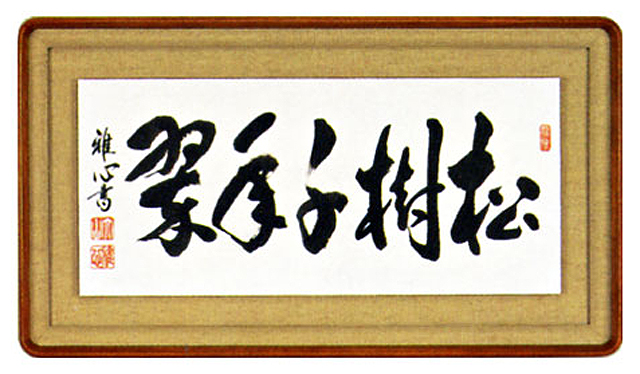 松樹千年翠
雅心書